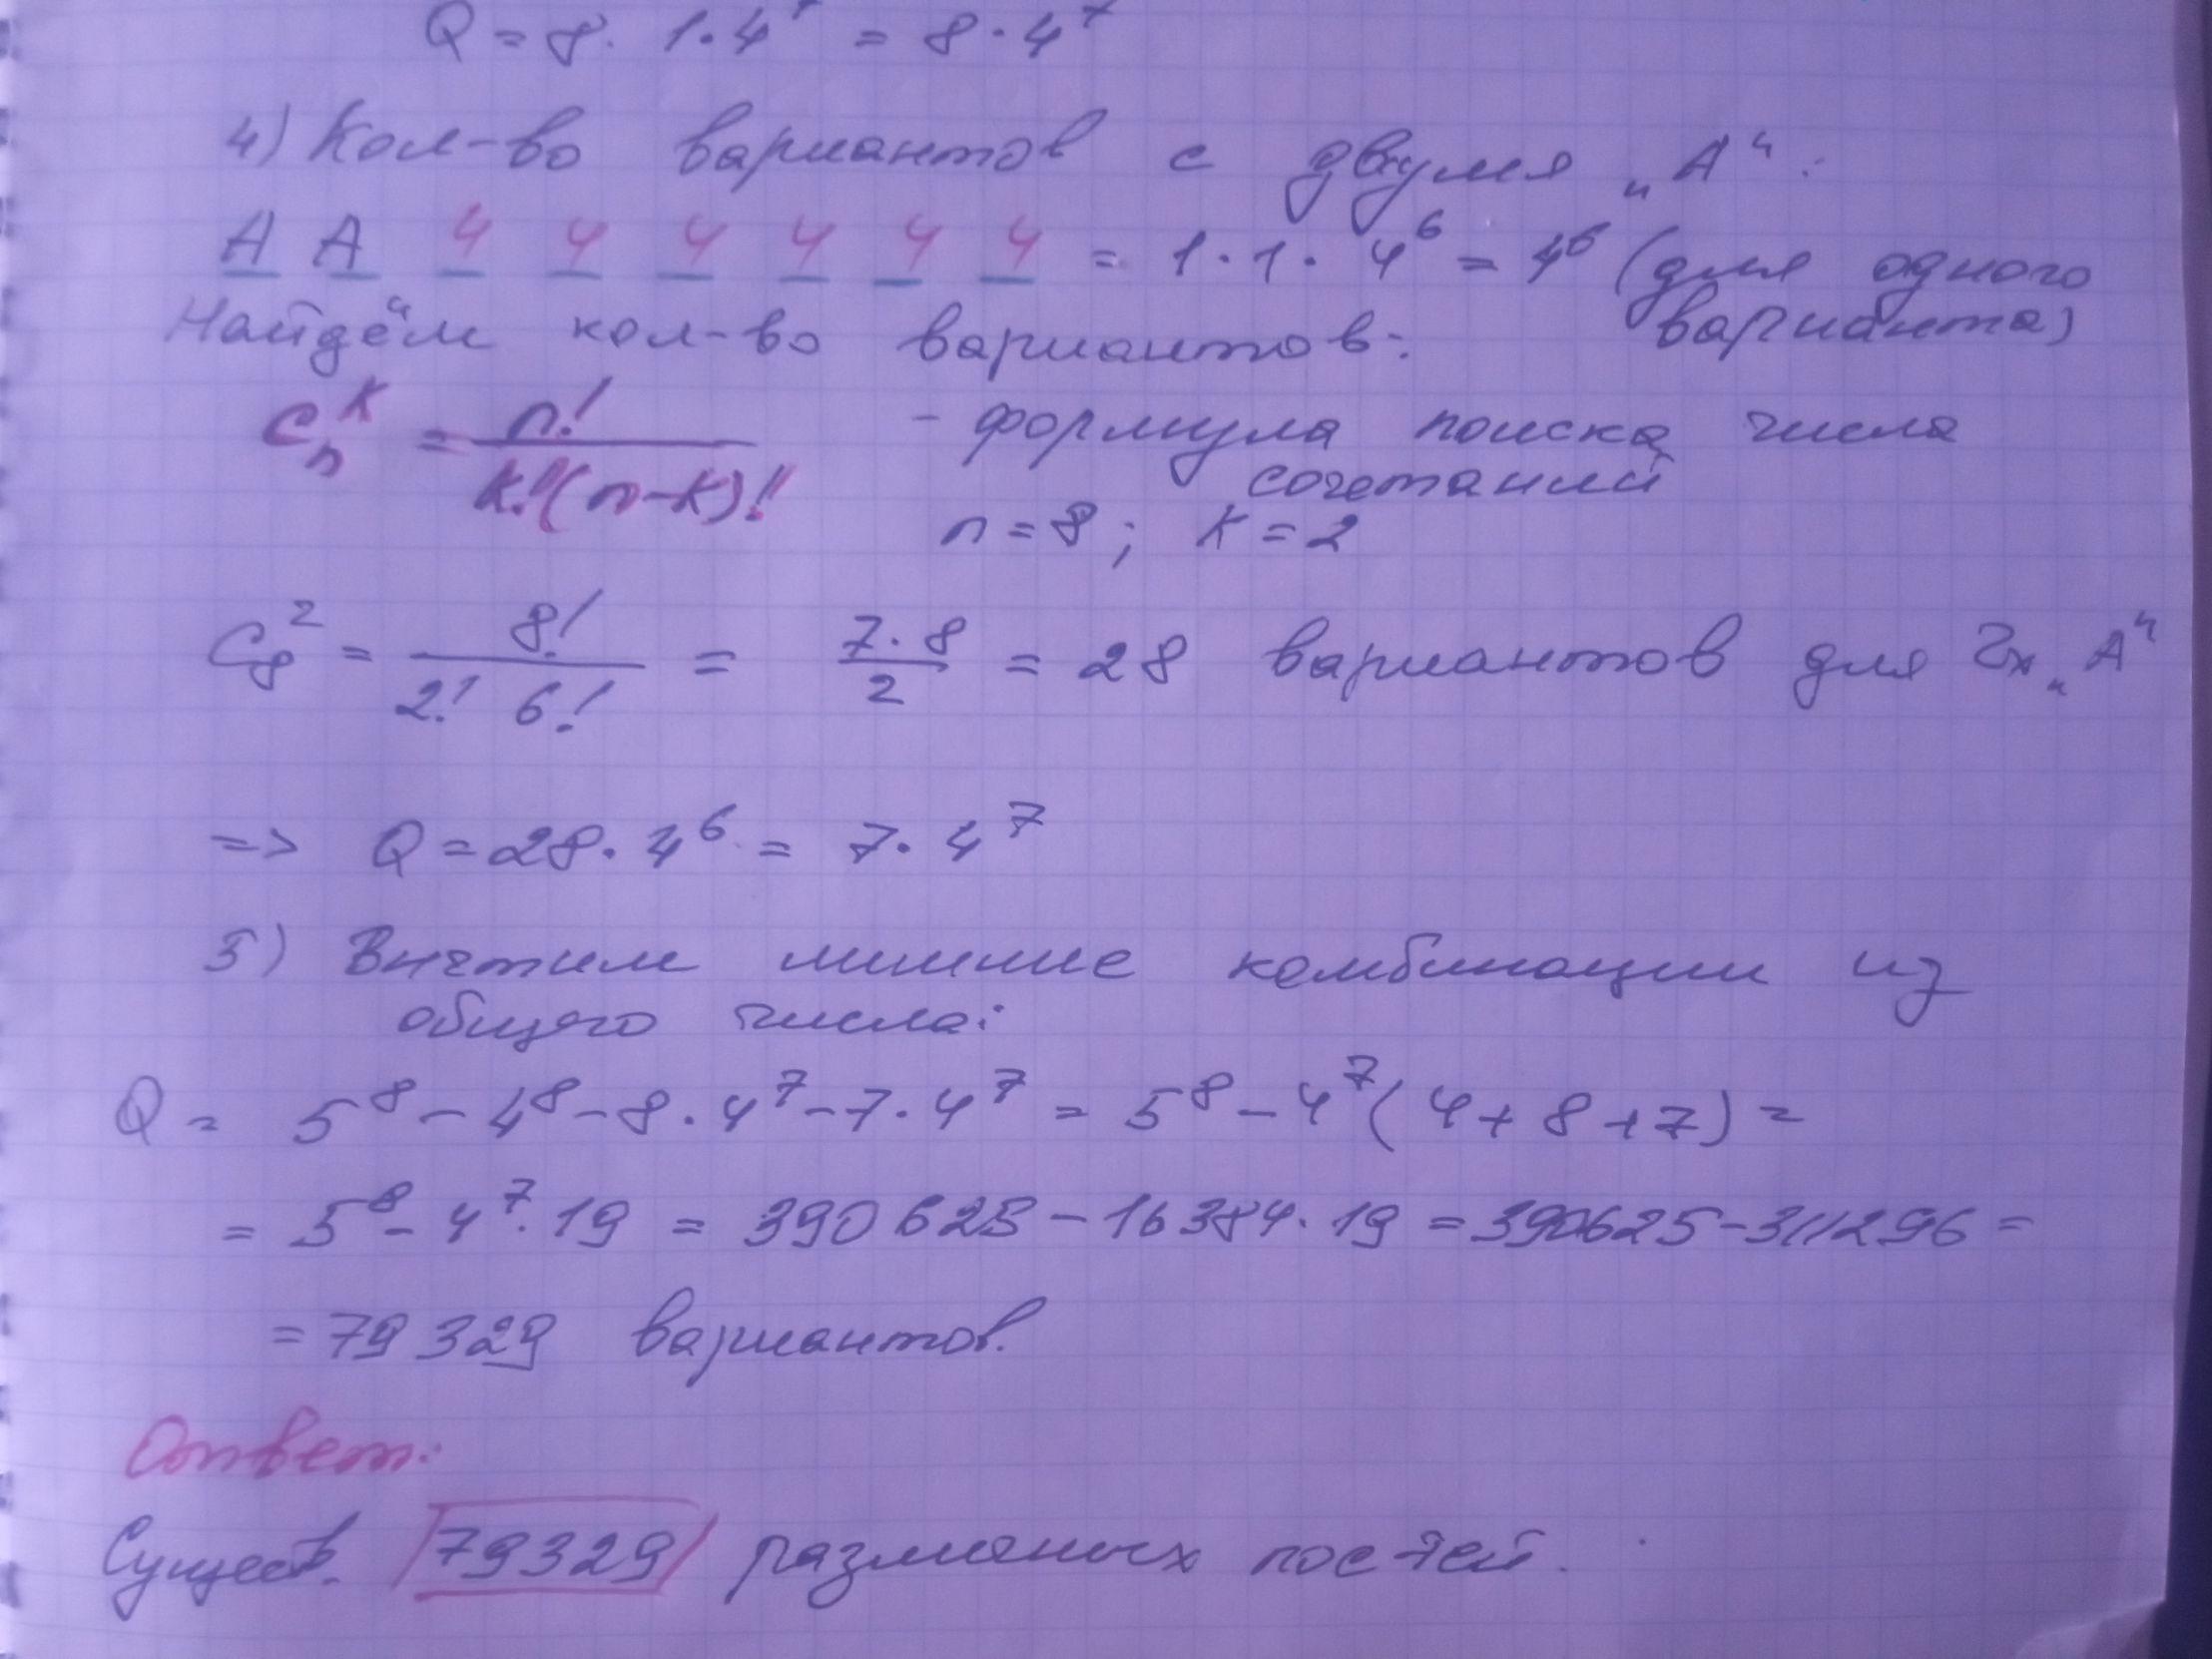 Q = 8 · 1 · 4⁷ = 8 · 4⁷
4) Кол-во вариантов с двумя „А“:
А А 4 4 4 4 4 4 = 1 · 1 · 4⁶ = 4⁶ (для одного варианта)
Найдём кол-во вариантов:
Cₙᴷ = n! / K!(n-K)! - формула поиска числа
сочетаний
n = 8; K = 2
C₈² = 8! / 2! 6! = 7 · 8 / 2 = 28 вариантов для 2х „А“
=> Q = 28 · 4⁶ = 7 · 4⁷
5) Вычтим лишние комбинации из
общего числа:
Q = 5⁸ - 4⁸ - 8 · 4⁷ - 7 · 4⁷ = 5⁸ - 4⁷(4 + 8 + 7) =
= 5⁸ - 4⁷ · 19 = 390625 - 16384 · 19 = 390625 - 311296 =
= 79329 вариантов.
Ответ:
Существ. 79329 различных